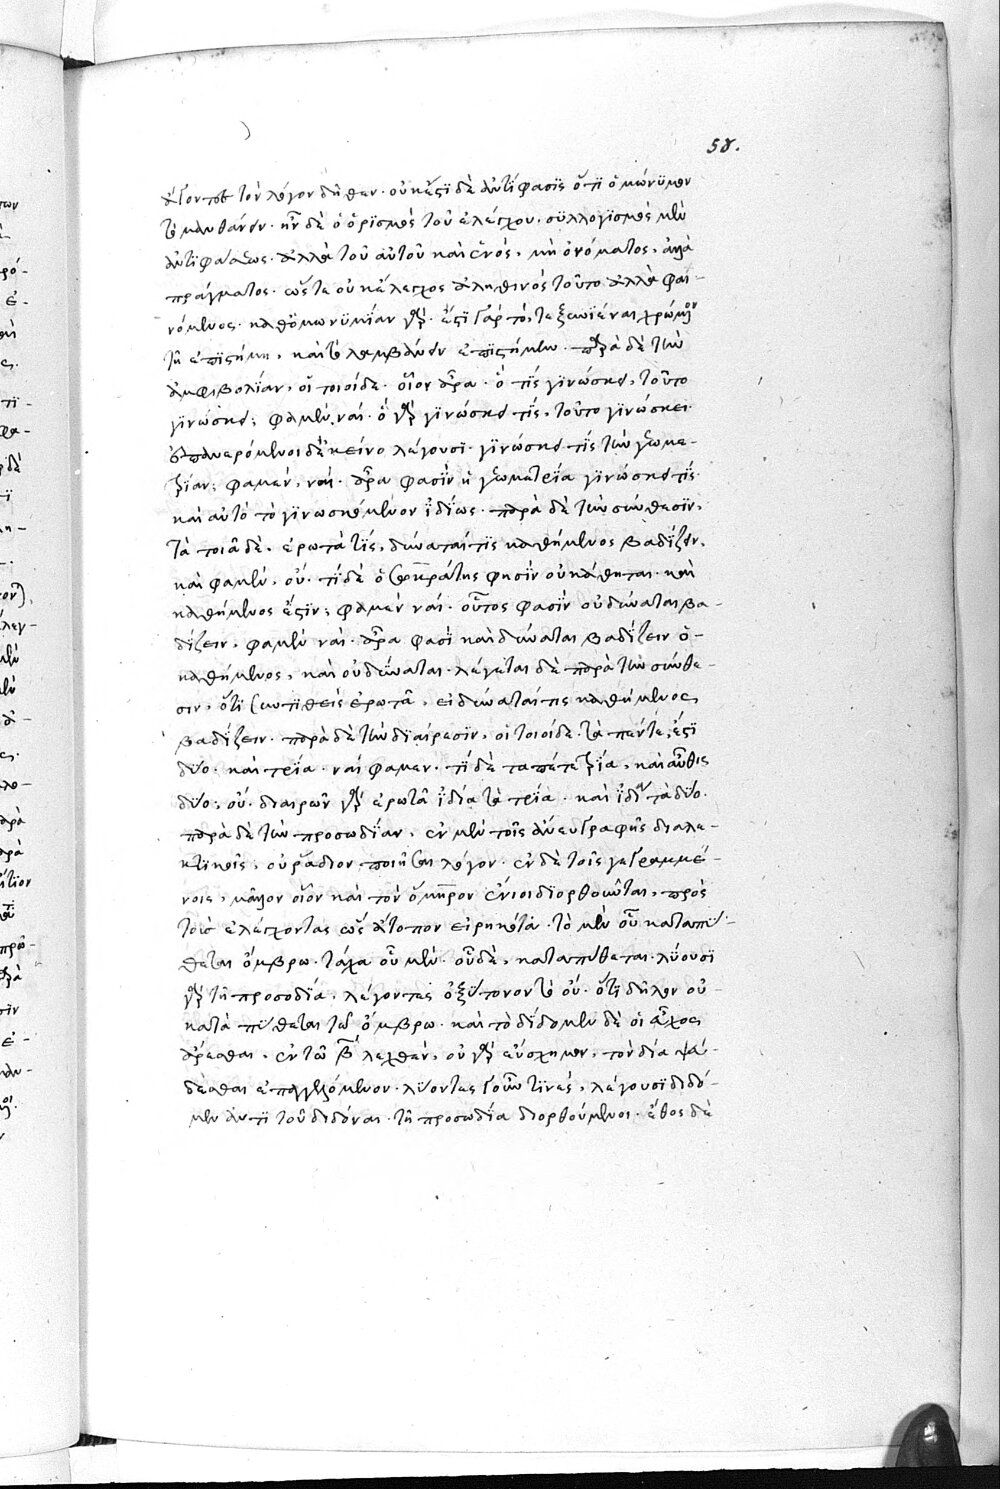 58.
ἄγοντος τὸν λόγον δῆθεν. οὐκ ἔστι δὲ ἀντίφασις ὅτι ὁμώνυμον
τὸ μανθάνειν. ἦν δὲ ὁ ὁρισμὸς τοῦ ἐλέγχου. συλλογισμὸς μετὰ
ἀντιφάσεως. ἀλλὰ τοῦ αὐτοῦ καὶ ἑνός. μὴ ὀνόματος, ἀλλὰ
πράγματος. ὥστε οὐκ ἔλεγχος ἀληθινός τοῦτο ἀλλὰ φαι-
νόμενος. καθ' ὁμωνυμίαν γάρ. ἔστι γάρ τό, τε ξυνιέναι χρώμενον
τῇ ἐπιστήμῃ, καὶ τὸ λαμβάνειν ἐπιστήμην. παρὰ δὲ τὴν
ἀμφιβολίαν, οἱ τοιοίδε. οἷον ἆρα. ὅ τις γινώσκει, τοῦτο
γινώσκει; φαμὲν ναί. ὃ γὰρ γινώσκει τίς, τοῦτο γινώσκει.
ἐπανερόμενοι δὲ κεῖνο λέγουσι. γινώσκει τις τὴν γεωμε-
τρίαν; φαμέν, ναί. ἆρα φασὶν ἡ γεωμετρία γινώσκει τίς
καὶ αὐτὸ τὸ γινωσκόμενον ἰδίως. παρὰ δὲ τὴν σύνθεσιν,
τὰ τοιάδε. ἐρωτᾷ τίς, δύναταί τις καθήμενος βαδίζειν,
καὶ φαμὲν, οὔ. τί δὲ ὁ Σωκράτης φησὶν οὐ κάθηται. καὶ
καθήμενος ἔστιν; φαμὲν ναί. οὗτος φασὶν οὐ δύναται βα-
δίζειν. φαμὲν ναί. ἆρα φασὶ καὶ δύναται βαδίζειν ὁ-
καθήμενος, καὶ οὐ δύναται. λέγεται δὲ παρὰ τὴν σύνθε-
σιν, ὅτι συντιθεὶς ἐρωτᾷ, εἰ δύναταί τις καθήμενος
βαδίζειν. παρὰ δὲ τὴν διαίρεσιν, οἱ τοιοίδε. τὰ πέντε, ἐστὶ
δύο. καὶ τρία. ναί φαμεν. τί δὲ τὰ πέντε τρία, καὶ αὖθις
δύο; οὔ. διαιρῶν γὰρ ἐρωτᾷ ἰδίᾳ τὰ τρία. καὶ ἰδίᾳ τὰ δύο.
παρὰ δὲ τὴν προσῳδίαν, ἐν μὲν τοῖς ἄνευ γραφῆς διαλε-
κτικοῖς, οὐ ῥᾴδιον ποιῆσαι λόγον. ἐν δὲ τοῖς γεγραμμέ-
νοις, μᾶλλον οἷον καὶ τὸν Ὅμηρον ἔνιοι διορθοῦνται, πρὸς
τοὺς ἐλέγχοντας ὡς ἄτοπον εἰρηκότα. τὸ μὲν οὗ καταπύ-
θεται ὄμβρῳ. τάχα οὖν μέν. οὗ δὲ, καταπύθεται. λύουσι
γὰρ τῇ προσοδίᾳ, λέγοντες ὀξύτονον τὸ οὔ. ὅτι δῆλον οὐ-
καταπύθεται τῷ ὄμβρῳ. καὶ τὸ δίδομεν δέ οἱ εὖχος
ἀρέσθαι, ἐν τῷ β λεχθέν, οὐ γὰρ εὔσχημον, τὸν δία ψεύ-
δεσθαι ἐπαγγελλόμενον. λύοντες γοῦν τινές, λέγουσι διδό-
μεν ἀντὶ τοῦ διδόναι. τῇ προσῳδίᾳ διορθούμενοι. ἔθος δὲ